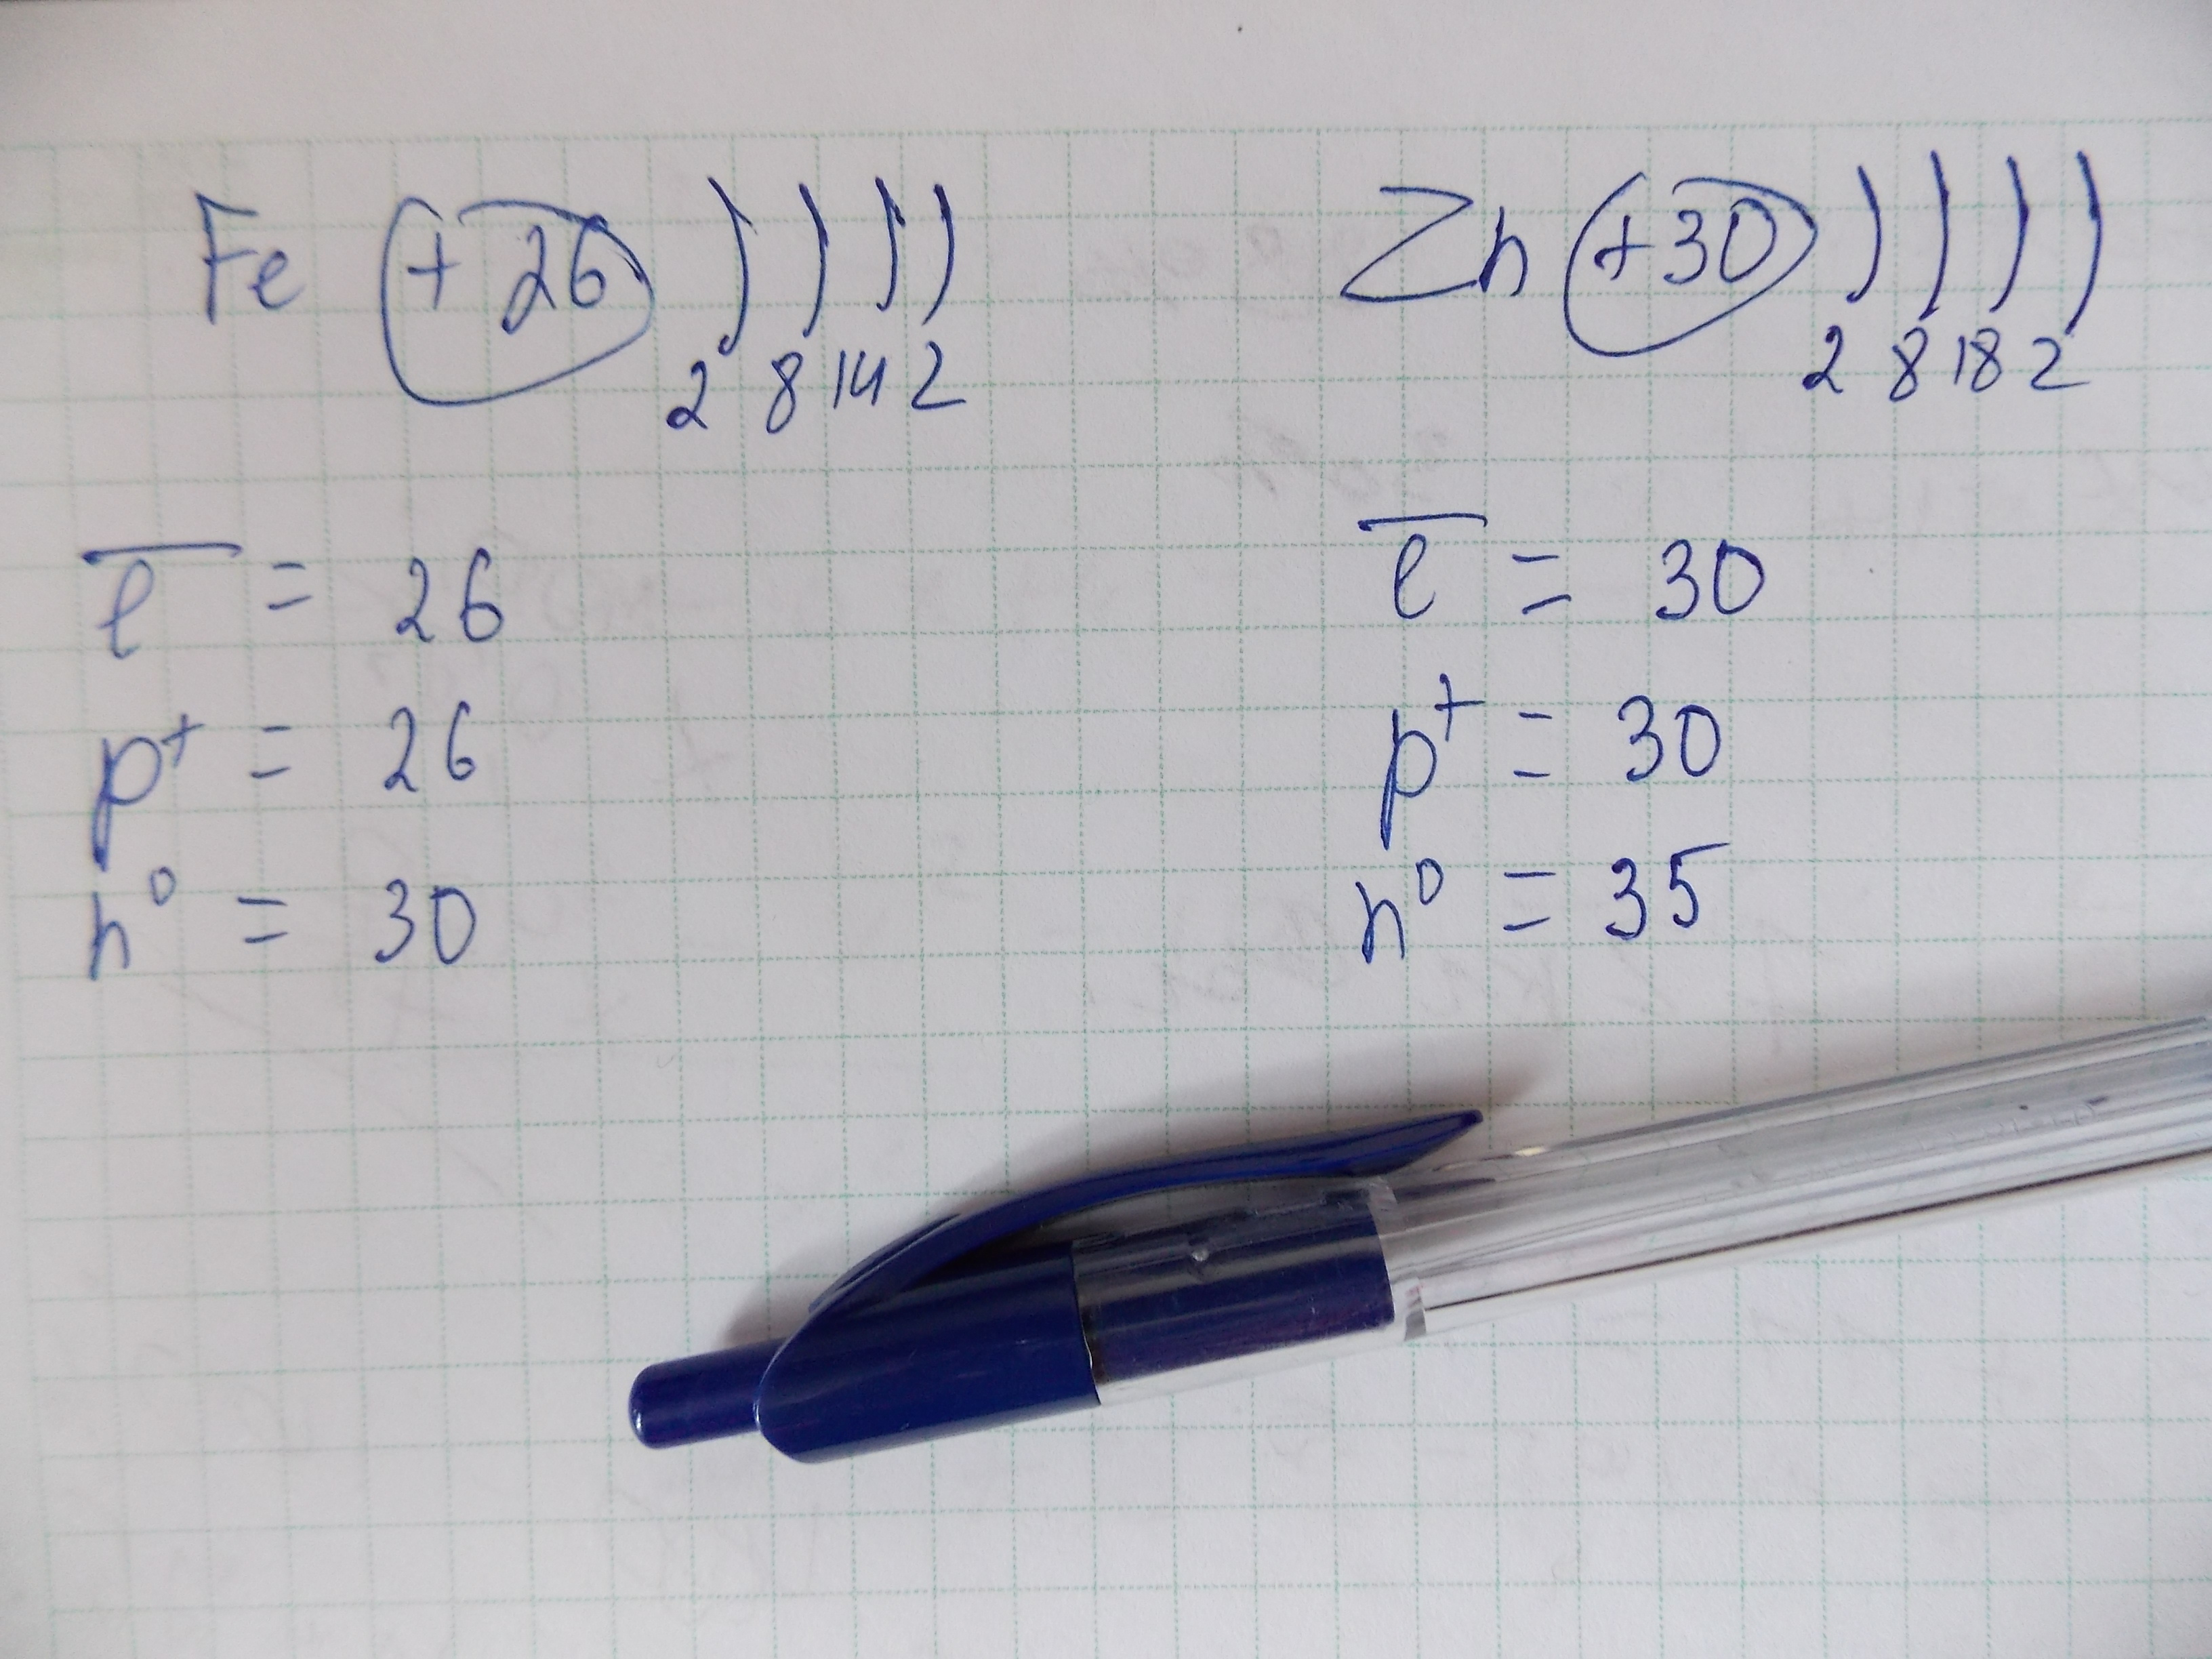 Fe (+26) ) ) ) )
2 8 14 2
e̅ = 26
p⁺ = 26
n⁰ = 30
Zn (+30) ) ) ) )
2 8 18 2
e̅ = 30
p⁺ = 30
n⁰ = 35